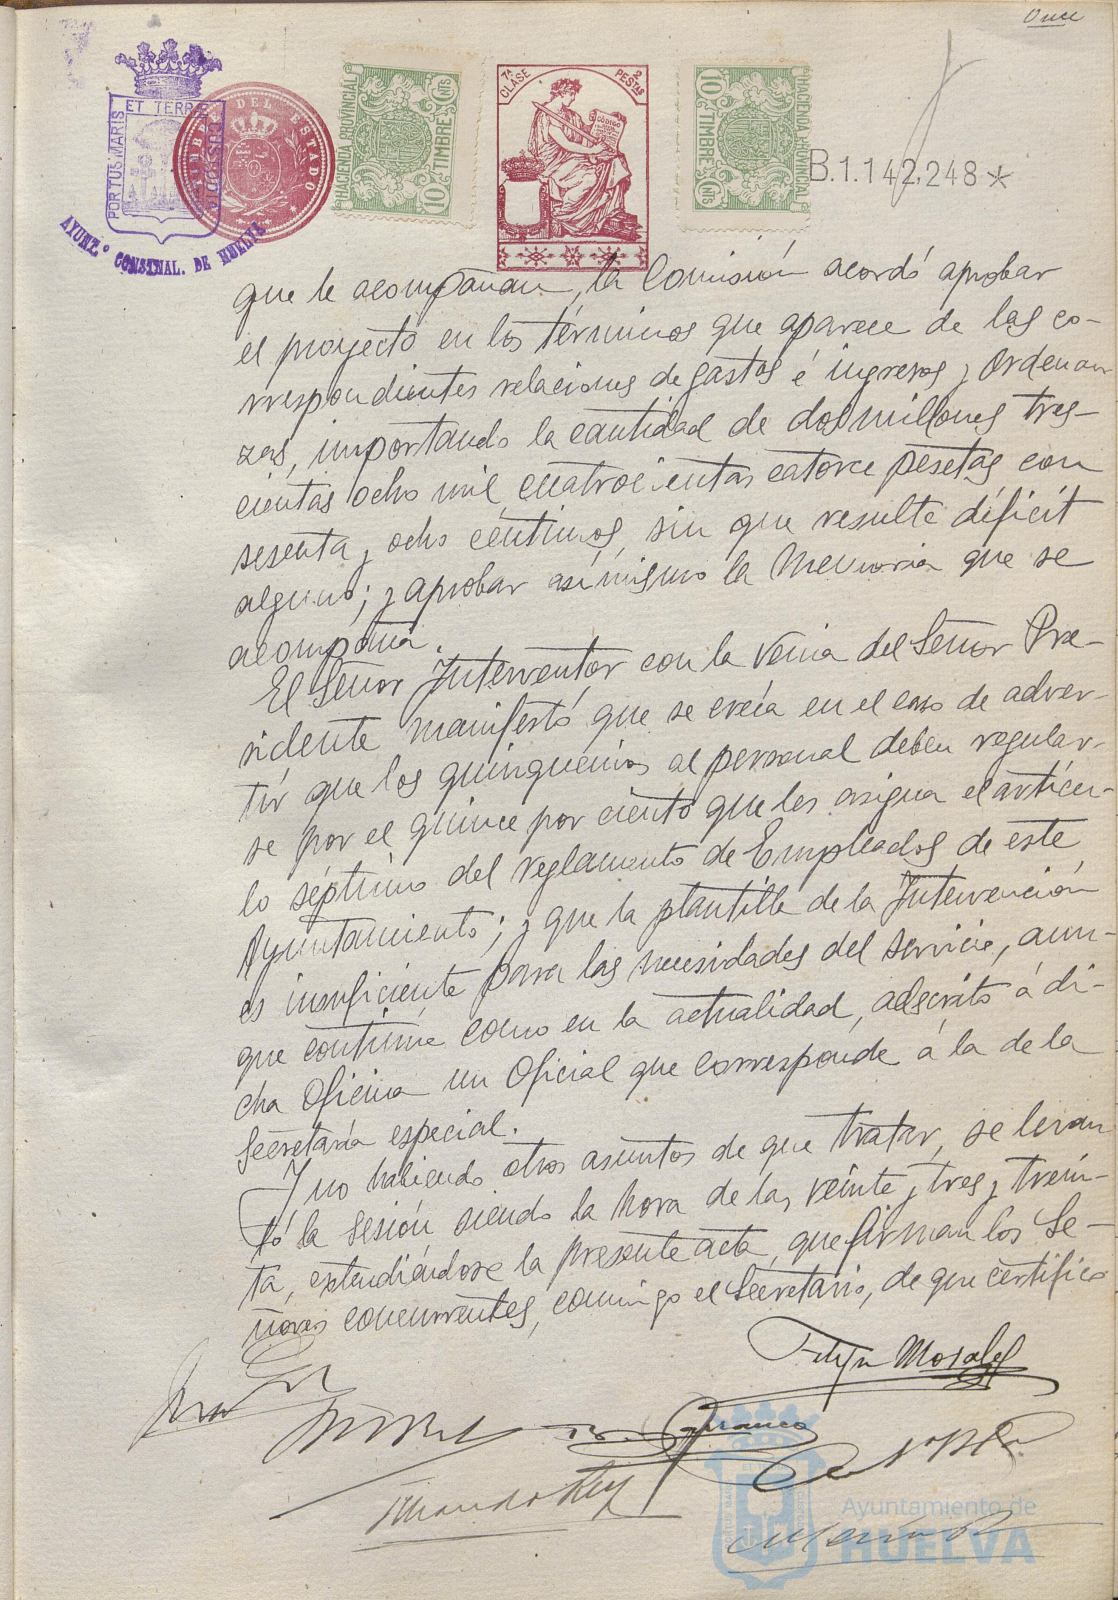 Once
PORTUS MARIS ET TERRÆ CUSTODIA
AYUNT.º CONSTNAL. DE HUELVA
TIMBRE DEL ESTADO
HACIENDA PROVINCIAL
TIMBRE
10 CTS
7ª CLASE 2 PESTAS
CÓDIGO
10 CTS
TIMBRE
HACIENDA PROVINCIAL
B.1.142,248*
que le acompañan, la Comisión acordó aprobar
el proyecto en los términos que aparece de las co-
rrespondientes relaciones de gastos é ingresos y Ordenan
zas, importando la cantidad de dos millones tres-
cientas ocho mil cuatrocientas catorce pesetas con
sesenta y ocho céntimos, sin que resulte déficit
alguno; y aprobar asímismo la Memoria que se
acompaña.
El Señor Interventor con la venia del Señor Pre-
sidente manifestó que se creía en el caso de adver-
tir que los quinquenios al personal deben regular-
se por el quince por ciento que les asigna el artícu-
lo séptimo del reglamento de Empleados de este
Ayuntamiento; y que la plantilla de la Intervención
es insuficiente para las necesidades del servicio, aun-
que continúe como en la actualidad, adscrito á di-
cha Oficina un Oficial que corresponde á la de la
Secretaría especial.
Y no habiendo otros asuntos de que tratar, se levan
tó la sesión siendo la hora de las veinte y tres y trein-
ta, extendiéndose la presente acta, que firman los Se-
ñores concurrentes, conmigo el Secretario, de que certifico
Felipe Morales
Franco
Ayuntamiento de
HUELVA